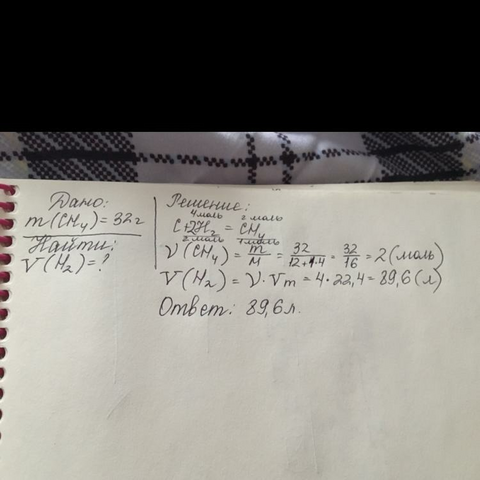 Дано:
m(CH₄)=32г
Найти:
V(H₂)=?
Решение:
4 моль 2 моль
C+2H₂ = CH₄
2 моль 1 моль
ν(CH₄) = m/M = 32/12+1·4 = 32/16 = 2 (моль)
V(H₂) = ν · Vm = 4 · 22,4 = 89,6 (л)
Ответ: 89,6 л.